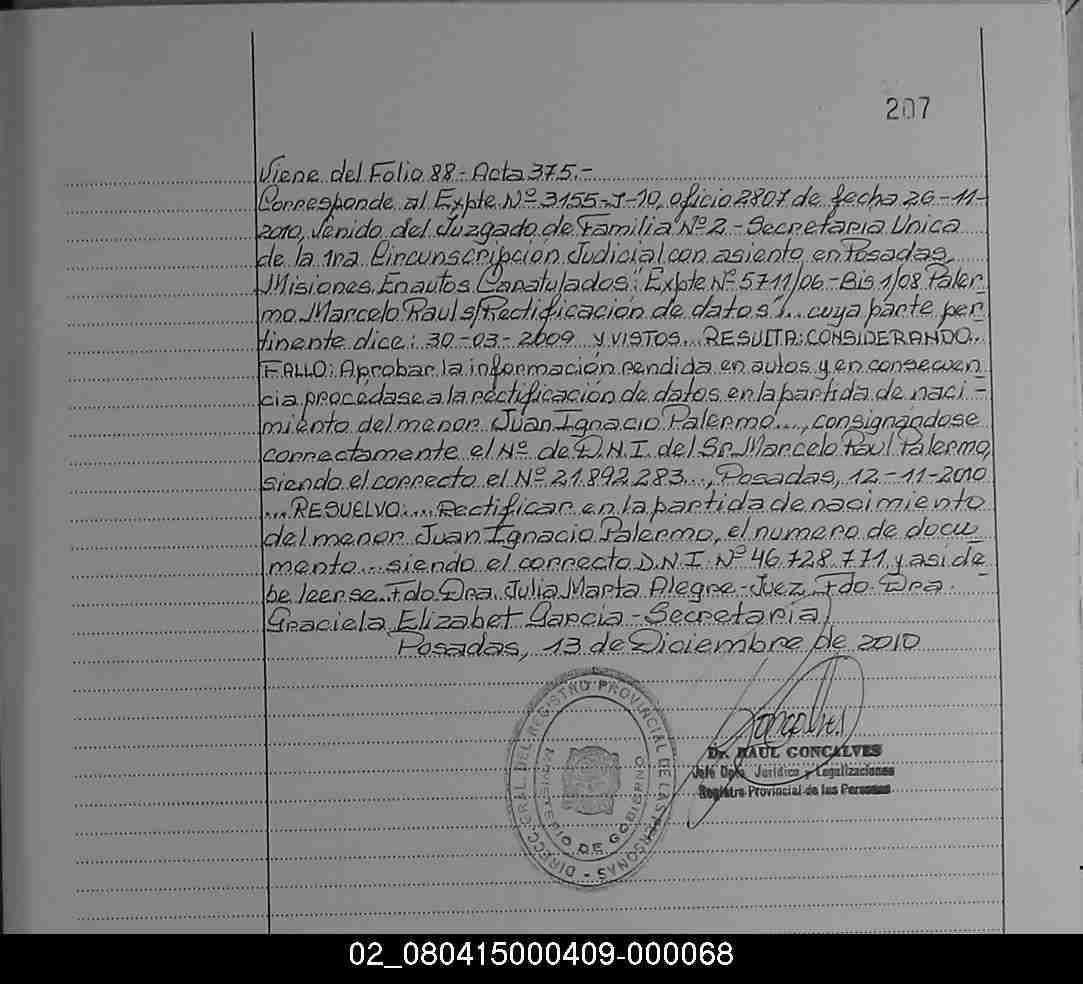 207
Viene del Folio 88 - Acta 375.-
Corresponde al Expte Nº 3155-J-10, oficio 2807 de fecha 26-11-
2010, venido del Juzgado de Familia Nº 2 - Secretaria Unica
de la 1ra Circunscripción Judicial con asiento en Posadas,
Misiones. En autos Caratulados: "Expte Nº 5711/06 - Bis 1/08 Paler
mo Marcelo Raul s/Rectificación de datos"... cuya parte per
tinente dice: 30-03-2009 Y VISTOS... RESULTA: CONSIDERANDO..
FALLO: Aprobar la información rendida en autos y en consecuen
cia procédase a la rectificación de datos en la partida de naci -
miento del menor Juan Ignacio Palermo..., consignándose
correctamente el Nº de D.N.I. del Sr. Marcelo Raul Palermo,
siendo el correcto el Nº 21.892.283..., Posadas, 12-11-2010
...RESUELVO:... Rectificar en la partida de nacimiento
del menor Juan Ignacio Palermo, el numero de docu
mento... siendo el correcto D.N.I. Nº 46.728.771 y asi de
be leerse. Fdo Dra. Julia Marta Alegre - Juez. Fdo. Dra.
Graciela Elizabet Garcia - Secretaria)
Posadas, 13 de Diciembre de 2010
DIRECC. GRAL. DEL REGISTRO PROVINCIAL DE LAS PERSONAS -
MINISTERIO DE GOBIERNO
Dr. RAUL GONCALVES
Jefe Dpto. Jurídico y Legalizaciones
Registro Provincial de las Personas
02_080415000409-000068